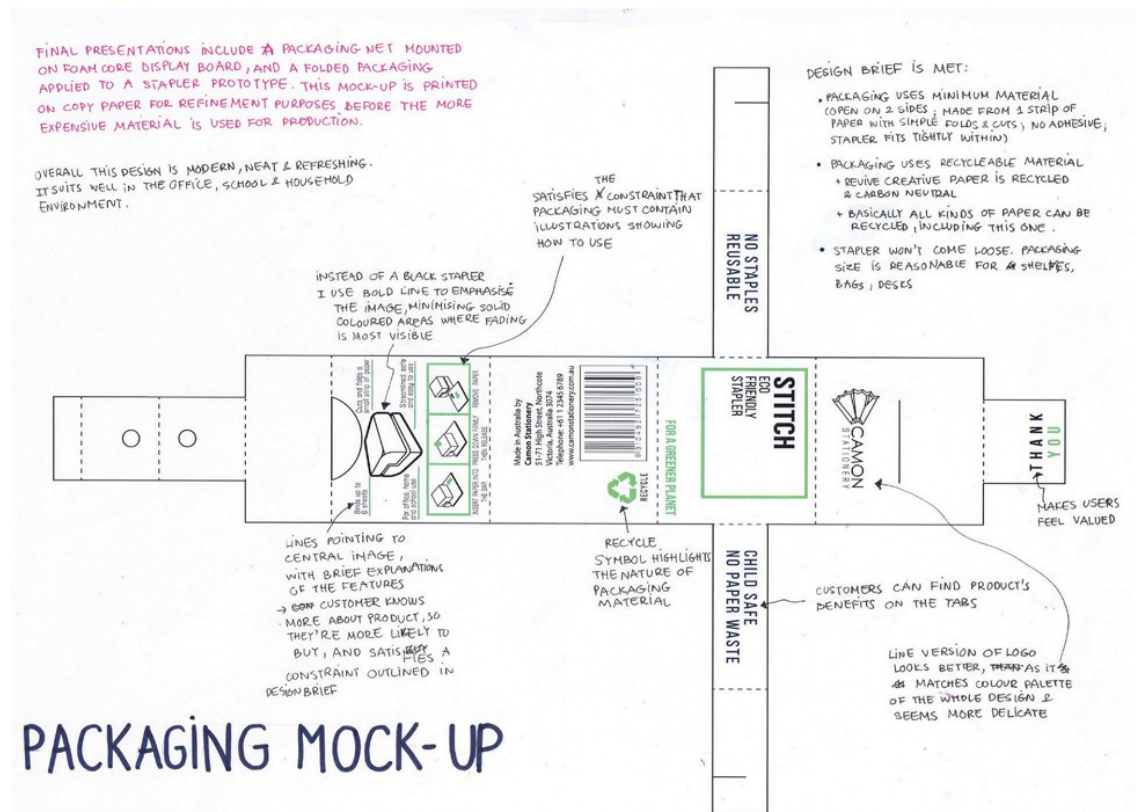 FINAL PRESENTATIONS INCLUDE A PACKAGING NET MOUNTED
ON FOAM CORE DISPLAY BOARD, AND A FOLDED PACKAGING
APPLIED TO A STAPLER PROTOTYPE. THIS MOCK-UP IS PRINTED
ON COPY PAPER FOR REFINEMENT PURPOSES BEFORE THE MORE
EXPENSIVE MATERIAL IS USED FOR PRODUCTION.
OVERALL THIS DESIGN IS MODERN, NEAT & REFRESHING.
IT SUITS WELL IN THE OFFICE, SCHOOL & HOUSEHOLD
ENVIRONMENT.
INSTEAD OF A BLACK STAPLER
I USE BOLD LINE TO EMPHASISE
THE IMAGE, MINIMISING SOLID
COLOURED AREAS WHERE FADING
IS MOST VISIBLE
THE
SATISFIES CONSTRAINT THAT
PACKAGING MUST CONTAIN
ILLUSTRATIONS SHOWING
HOW TO USE
DESIGN BRIEF IS MET:
• PACKAGING USES MINIMUM MATERIAL
(OPEN ON 2 SIDES; MADE FROM 1 STRIP OF
PAPER WITH SIMPLE FOLDS & CUTS; NO ADHESIVE;
STAPLER FITS TIGHTLY WITHIN)
• PACKAGING USES RECYCLEABLE MATERIAL
+ REVIVE CREATIVE PAPER IS RECYCLED
& CARBON NEUTRAL
+ BASICALLY ALL KINDS OF PAPER CAN BE
RECYCLED, INCLUDING THIS ONE.
• STAPLER WON'T COME LOOSE. PACKAGING
SIZE IS REASONABLE FOR SHELVES,
BAGS, DESKS
NO STAPLES
REUSABLE
Cuts and folds a
small strip of paper
Streamlined, safe
and easy to use
Binds up to
sheets
For office, home
and school use
INSERT PAPER INTO
THE GAP.
PRESS DOWN FIRMLY
THEN RELEASE.
REMOVE PAPER
Made in Australia by
Camon Stationery
51-71 High Street, Northcote
Victoria, Australia 3074
Telephone: +61 1 2345 6789
www.camonstationery.com.au
RECYCLE
FOR A GREENER PLANET
STITCH
ECO
FRIENDLY
STAPLER
CAMON
STATIONERY
THANK
YOU
MAKES USERS
FEEL VALUED
CHILD SAFE
NO PAPER WASTE
LINES POINTING TO
CENTRAL IMAGE,
WITH BRIEF EXPLANATIONS
OF THE FEATURES
→ CUSTOMER KNOWS
MORE ABOUT PRODUCT, SO
THEY'RE MORE LIKELY TO
BUY, AND SATISFIES A
CONSTRAINT OUTLINED IN
DESIGN BRIEF
RECYCLE
SYMBOL HIGHLIGHTS
THE NATURE OF
PACKAGING
MATERIAL
CUSTOMERS CAN FIND PRODUCT'S
BENEFITS ON THE TABS
LINE VERSION OF LOGO
LOOKS BETTER, AS IT
MATCHES COLOUR PALETTE
OF THE WHOLE DESIGN &
SEEMS MORE DELICATE
PACKAGING MOCK-UP